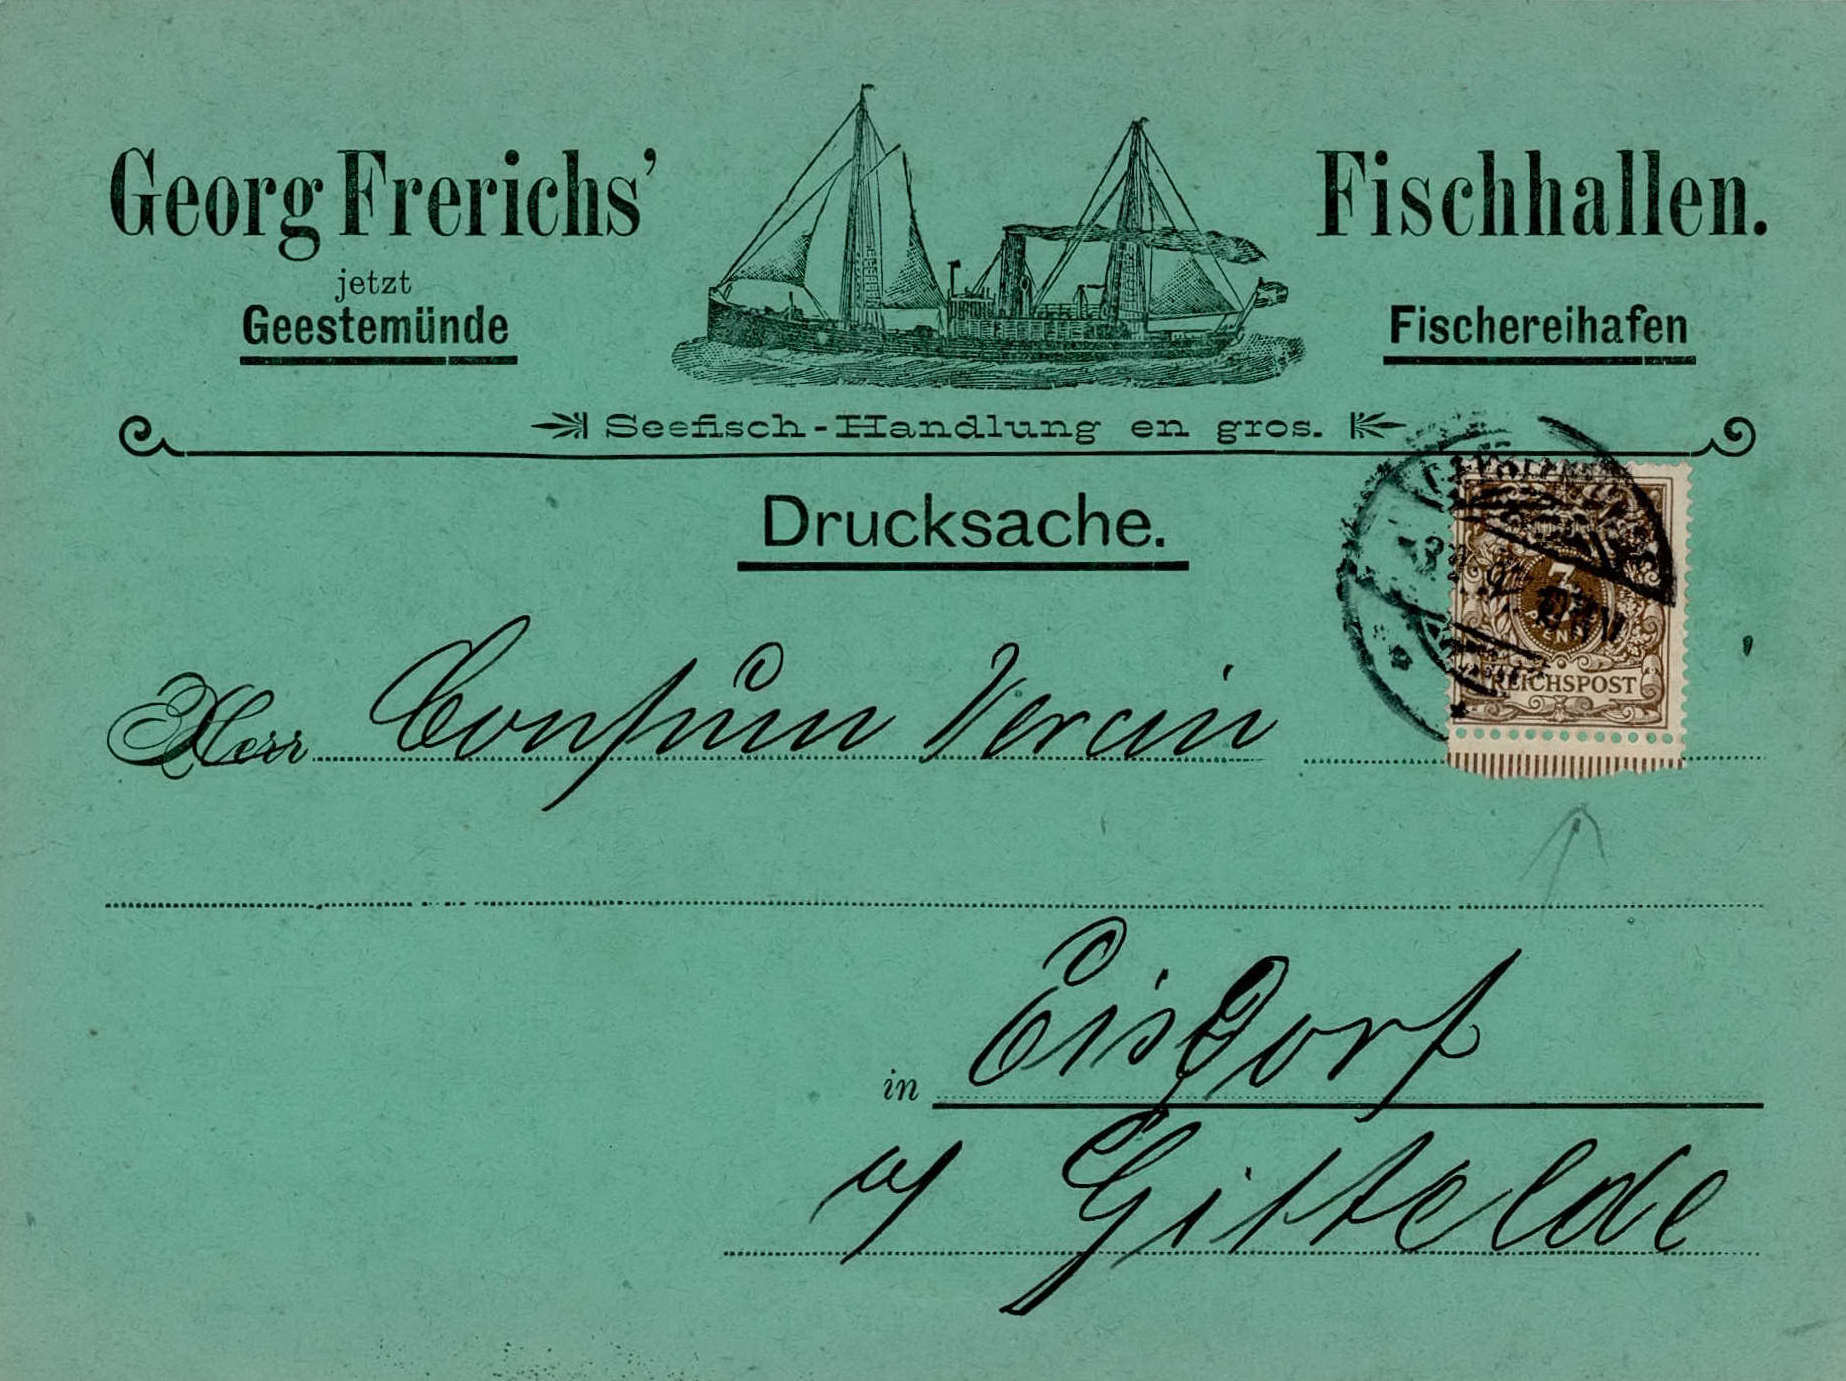 Georg Frerichs' Fischhallen.
jetzt
Geestemünde Fischereihafen
Seefisch-Handlung en gros.
Drucksache.
3
REICHSPOST
Herr Consum Verein
in Eisdorf
Gittelde